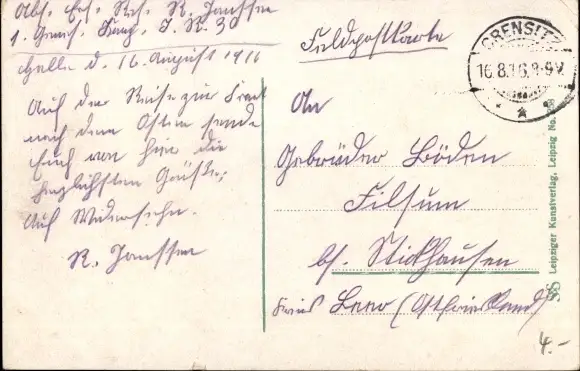 Abs. Ers. Res. R. Janssen
1. Komp. I. R. 30
Halle d. 16. August 1916
Auf der Reise zur Front
nach dem Osten sende
Euch von hier die
herzlichsten Grüße,
Auf Wiedersehn.
R. Janssen
Feldpostkarte
An
Gebrüder Böden
Filsum
bh. Stickhausen
Kreis Leer (Ostfriesland)
CRENSITZ
16.8.16.8-9V.
Leipziger Kunstverlag, Leipzig No.
4.-